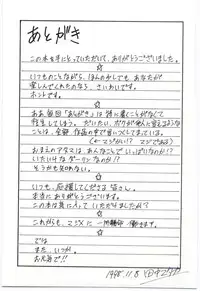 あとがき
この本を手にとっていただいて、ありがとうございました。
☆
いつものことながら、ほんの少しでも あなたが
楽しんでくれたのなら、さいわいです。
ホントです。
☆
ああ毎回「あとがき」は 特に書くことがなくて
苦労してしまう。だいたい、ボクが他人に言えるような
ことは、全部 作品の中で言いつくしてしまっている。
(←マジかい!? マジである)
おまえのアタマは、あんなことで いっぱいなのか!?
いたいけな ダーリンなのか!?
そうかも知れない。
☆
いつも、応援してくださる 皆さん。
本当に ありがとうございます。
この本は 気に入って いただけましたか?
☆
これからも、マジメに 一所懸命 働きます。
☆
では
また、いつか。
お元気で!!
1998.11.8